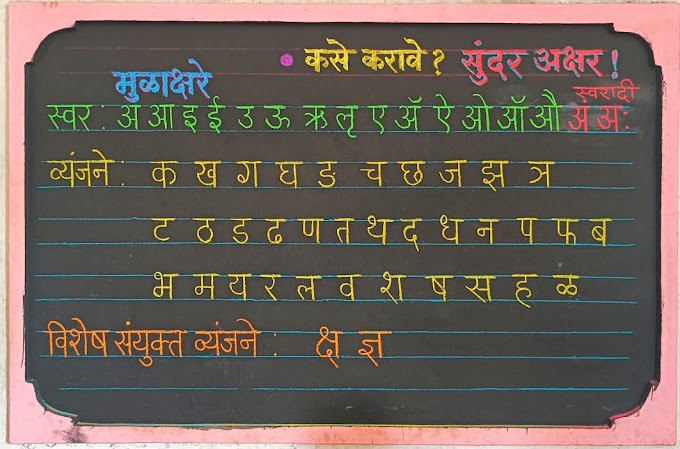 • कसे करावे? सुंदर अक्षर!
मुळाक्षरे
स्वरादी
स्वर : अ आ इ ई उ ऊ ऋ लृ ए ॲ ऐ ओ ऑ औ अं अः
व्यंजने : क ख ग घ ङ च छ ज झ ञ
ट ठ ड ढ ण त थ द ध न प फ ब
भ म य र ल व श ष स ह ळ
विशेष संयुक्त व्यंजने : क्ष ज्ञ